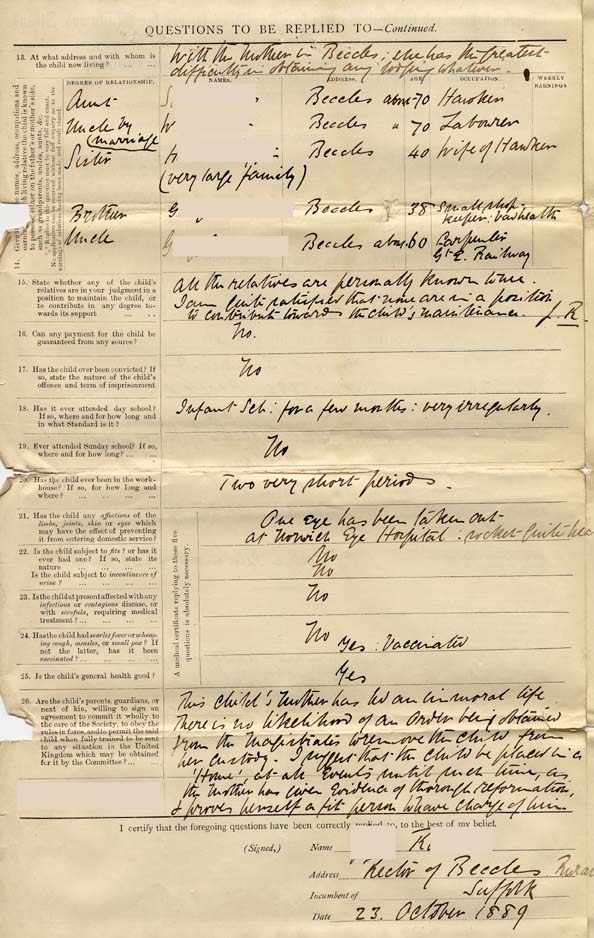 QUESTIONS TO BE REPLIED TO—Continued.
13. At what address and with whom is the child now living? ...
With the Mother in Beccles; she has the greatest
difficulty in obtaining any lodging whatever.
DEGREE OF RELATIONSHIP. NAMES. ADDRESS. AGE OCCUPATION. WEEKLY EARNINGS
Aunt S. " Beccles about 70 Hawker
Uncle by (marriage W " Beccles " 70 Labourer
Sister H " Beccles 40 Wife of Hawker
(very large family)
Brother G " Beccles 38 Small shop-keeper: bad health
Uncle G Beccles about 60 Carpenter Gt E. Railway
15. State whether any of the child's
relatives are in your judgment in a
position to maintain the child, or
to contribute in any degree to-
wards its support ... ..
All the relatives are personally known to me.
I am quite satisfied that none are in a position
to contribute towards the child's maintenance. J. R.
16. Can any payment for the child be
guaranteed from any source?
No.
17. Has the child ever been convicted? If
so, state the nature of the child's
offence and term of imprisonment
No
18. Has it ever attended day school?
If so, where and for how long and
in what Standard is it?
Infant Sch: for a few months: very irregularly.
19. Ever attended Sunday school? If so,
where and for how long? ... ...
No
20. Has the child ever been in the work-
house? If so, for how long and
where? ... ... ... ...
Two very short periods.
A medical certificate replying to these five
questions is absolutely necessary.
21. Has the child any affections of the
limbs, joints, skin or eyes which
may have the effect of preventing
it from entering domestic service?
One Eye has been taken out
at Norwich Eye Hospital: socket quite hea
22. Is the child subject to fits? or has it
ever had one? If so, state its
nature ... ... ... ...
No
Is the child subject to incontinence of
urine? ... ... ... ...
No
23. Is the child at present affected with any
infectious or contagious disease, or
with scrofula, requiring medical
treatment? ... ... ...
No
24. Has the child had scarlet fever or whoop-
ing cough, measles, or small pox? If
not the latter, has it been
vaccinated? ... ... ...
No
Yes: Vaccinated
25. Is the child's general health good?
Yes
26. Are the child's parents, guardians, or
next of kin, willing to sign an
agreement to commit it wholly to
the care of the Society, to obey the
rules in force, and to permit the said
child when fully trained to be sent
to any situation in the United
Kingdom which may be obtained
for it by the Committee? ... ...
This child's Mother has led an immoral life
There is no likelihood of an Order being obtained
from the Magistrates to remove the child from
her custody. I suggest that the child be placed in a
'Home', at all Events until such time, as
the Mother has given Evidence of thorough reformation,
& proves herself a fit person to have charge of him
I certify that the foregoing questions have been correctly replied to, to the best of my belief.
(Signed,) Name R.
Address Rector of Beccles Rural
Incumbent of Suffolk
Date 23. October 1889